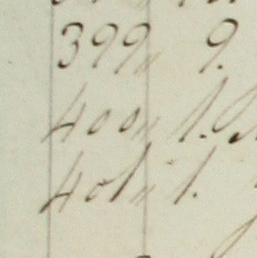 399 " 9.
400 " 1.
401 " 1.